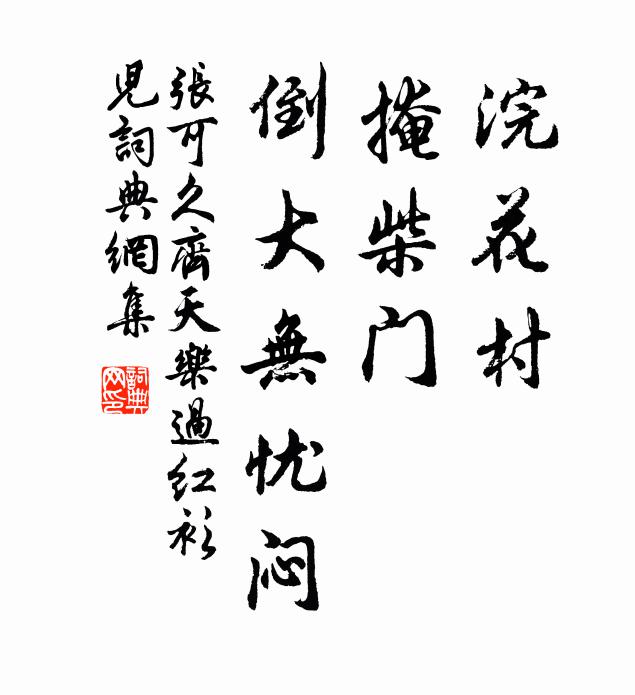 浣花村
掩柴门
倒大無忧闷
張可久齊天樂過红衫
児詞典網集
詞典
网印